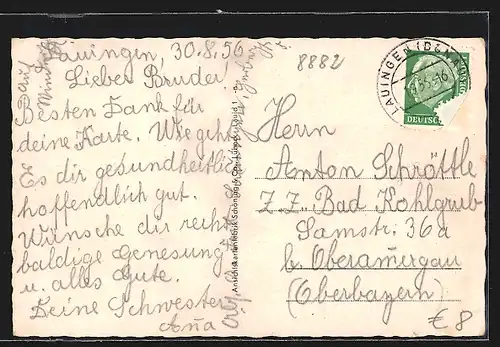 Lauingen, 30.8.56
Lieber Bruder!
Besten Dank für
deine Karte. Wie geht
Es dir gesundheitlich
hoffendlich gut.
Wünsche dir recht
baldige Genesung
u. alles Gute.
Deine Schwester
Anna
auf
8882
LAUINGEN (DONAU)
DEUTSCHE
Herrn
Anton Schröttle
Z.Z. Bad Kohlgrub
Samstr. 36a
b. Oberamurgau
(Oberbayern)
€ 8
Ansichtskartenfabrik Schöning & Co., Lübeck